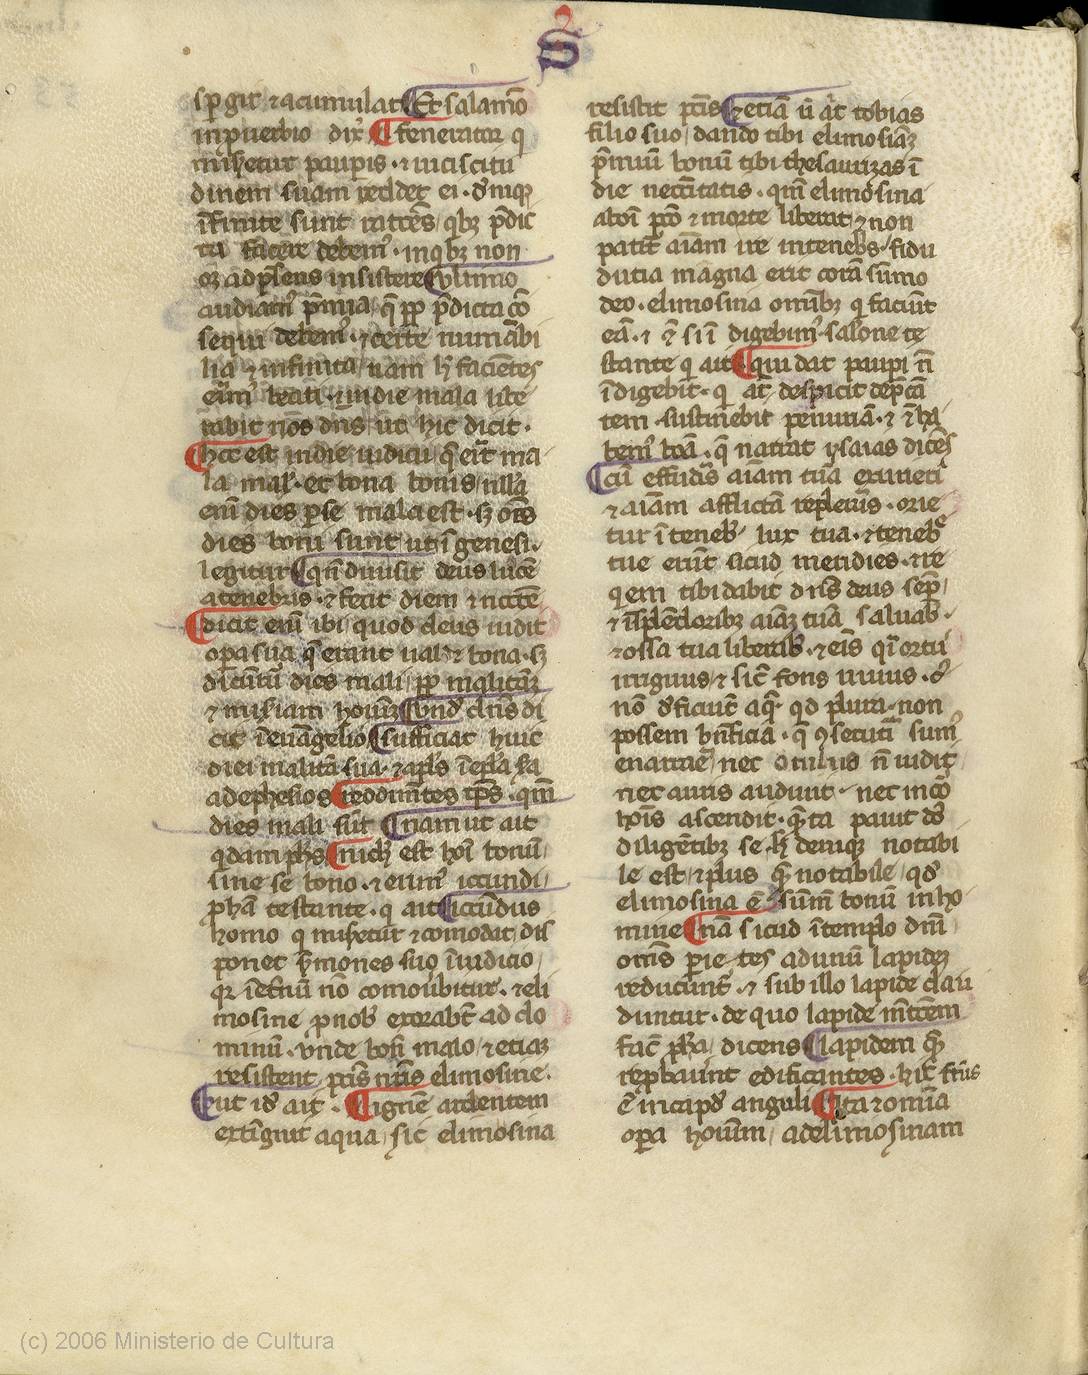 S
spgit ⁊ acumulat Et salamo
in puerbio dix feneratur q
mis̃etur paupis · ⁊ uicisitu
dinem suam reddet ei · d̃niqꝫ
ĩfinite sunt rat̃oẽs qbꝫ p̃dic
ta facere debem᷒ · in qbꝫ non
oꝫ ad p̃sens insistere Vltimo
audiam᷒ p̃mia q̃ ꝓp̃ p̃dicta cõ
sequi debem᷒ · ⁊ certe mirabi
lia ⁊ infinita nam h̃ facientes
erim᷒ beati · in die mala libe
rabit nos dñs ut hic dicit ·
hoc est in die iudicii q̃ erit ma
la mal · et bona bonis nulla
eni dies p se mala est · sꝫ om̃s
dies boni sunt ut ĩ genesi ·
legitur qñ diuisit deus lucẽ
a tenebris · ⁊ fecit diem ⁊ noctẽ
dicit eni ibi quod deus uidit
opa sua q̃ erant ualde bona · sꝫ
dicunt dies mali ꝓp̃ malitiã
⁊ mis̃iam hoim Vnd̃ dñs di
cit ĩ euãgelio sufficiat huic
diei malitia sua · ⁊ apl̃s ĩ epl̃a sua
ad ephesios redimẽtes tp̃s · qm̃
dies mali sũt nam ut ait
qdam ph̃s nich̃ est hoĩ bonũ
sine se bono · ⁊ erim᷒ iocundi
ꝓph̃a testante · q ait iocũdus
homo q mis̃etur ⁊ comodat dis
ponet s̃mones suos ĩ iudicio
qꝛ ĩ etñũ nõ comouebitur · ⁊ eli
mosine ꝓ nob̃ exorabt̃ ad do
minũ · vnde bõfi malo ⁊ etiaꝫ
resistent pctĩs nr̃is elimosine ·
vt id̃ ait · ignẽ ardentem
extĩguit aqua sic elimosina
resistit pctĩs etiã ũ ait tobias
filio suo dando tibi elimosiãꝫ
p̃miũ bonũ tibi thesaurizas ĩ
die necẽitatis · qm̃ elimosina
ab oĩ pctõ ⁊ morte liberat ⁊ non
patit̃ aĩam ire in tenebs · fidu
ducia magna erit corã sũmo
deo · elimosina omĩbꝫ q faciũt
eã · ⁊ q̃ si ĩ digebim᷒ · salõne te
stante q ait qui dat paupi ñ
ĩdigebit · q aũt despicit dep̃cã
tem · sustinebit penuriã · ⁊ ĩ ha
bem᷒ boã · q̃ narrat ysaias dicẽs
cũ effudis̃ aĩam tuã esurieti
⁊ aĩam afflictã repleu̾is · orie
tur ĩ teneb̃ lux tua · ⁊ teneb̃e
tue erũt sicud meridies · ⁊ re
qem tibi dabit dñs deus semp̃
⁊ ĩplẽdoribꝫ aĩaꝫ tuã saluab ·
⁊ ossa tua liberab̃ · ⁊ eis qĩ ortũ
irriguus ⁊ sic̃ fons uiuus · cͥ
nõ d̃ficiũt aq̃ · qd plura non
possem bñficia · q̃ ꝯsecuti sum᷒
enarrare nec oculus ñ uidit
nec auris audiuit · nec in cõ
hoĩs ascendit · q̃ ita pauit de᷒
diligẽtibꝫ se h̃ deniqꝫ notabi
le est ⁊ plus q̃ notabile qd̃
elimosina ẽ sũm̃ bonũ in ho
mine nã sicud ĩ templo dñi
om̃s parietes ad unũ lapidẽ
reducũnt̃ · ⁊ sub illo lapide clau
duntur · de quo lapide m̃tõem
fac̃ ꝓph̃a dicens lapidem q̃
repbauũnt edificantes · hic fc̃us
ẽ in capd anguli Ita ⁊ omĩa
opa hoium ad elimosinam
(c) 2006 Ministerio de Cultura